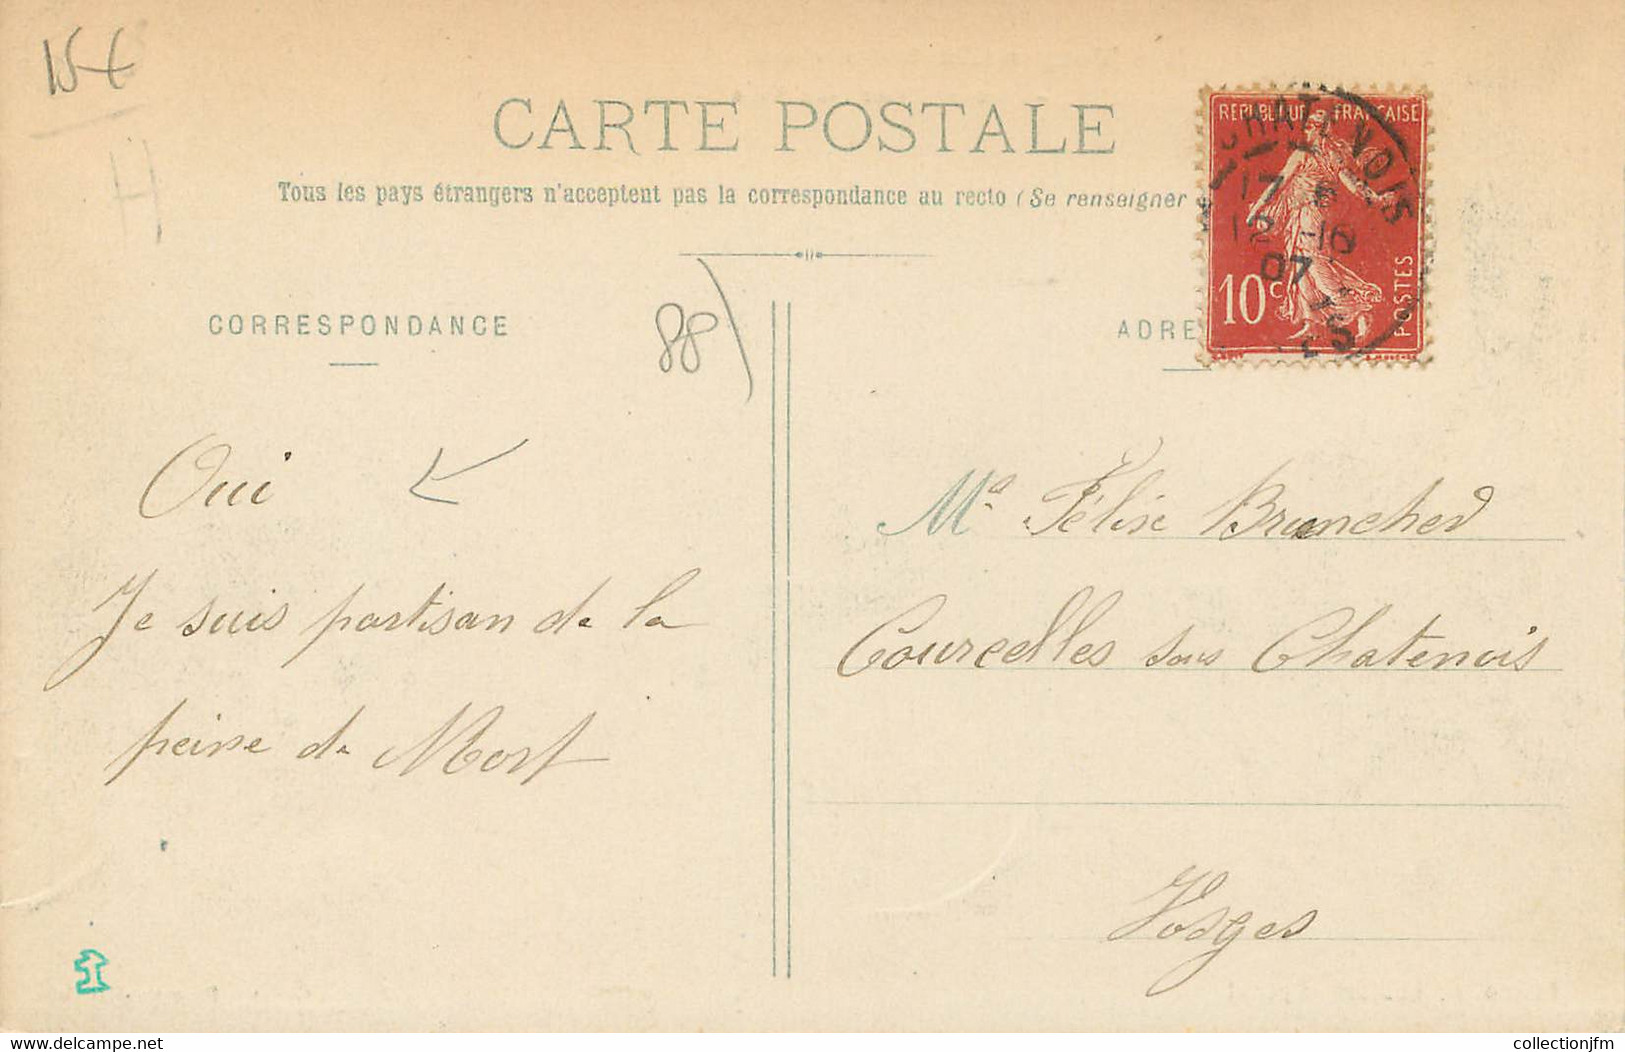 15€
H
CARTE POSTALE
Tous les pays étrangers n'acceptent pas la correspondance au recto (Se renseigner
REPUBLIQUE FRANÇAISE
CHATENOIS
17
12 -10
07
10c
POSTES
CORRESPONDANCE
88)
ADRE
Oui
Je suis partisan de la
peine de Mort
Félix
Courcelles sous Chatenois
Vosges
delcampe.net
collectionjfm